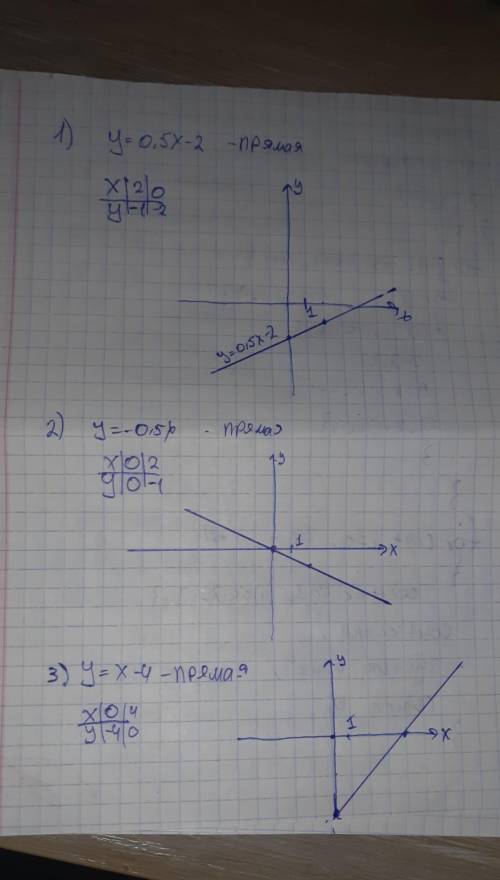 1) y = 0,5x-2 -прямая
x 2 0
y -1 -2
y
1
x
y=0,5x-2
2) y=-0,5x - прямая
x 0 2
y 0 -1
y
1
x
3) y = x-4 - прямая
x 0 4
y -4 0
y
1
x